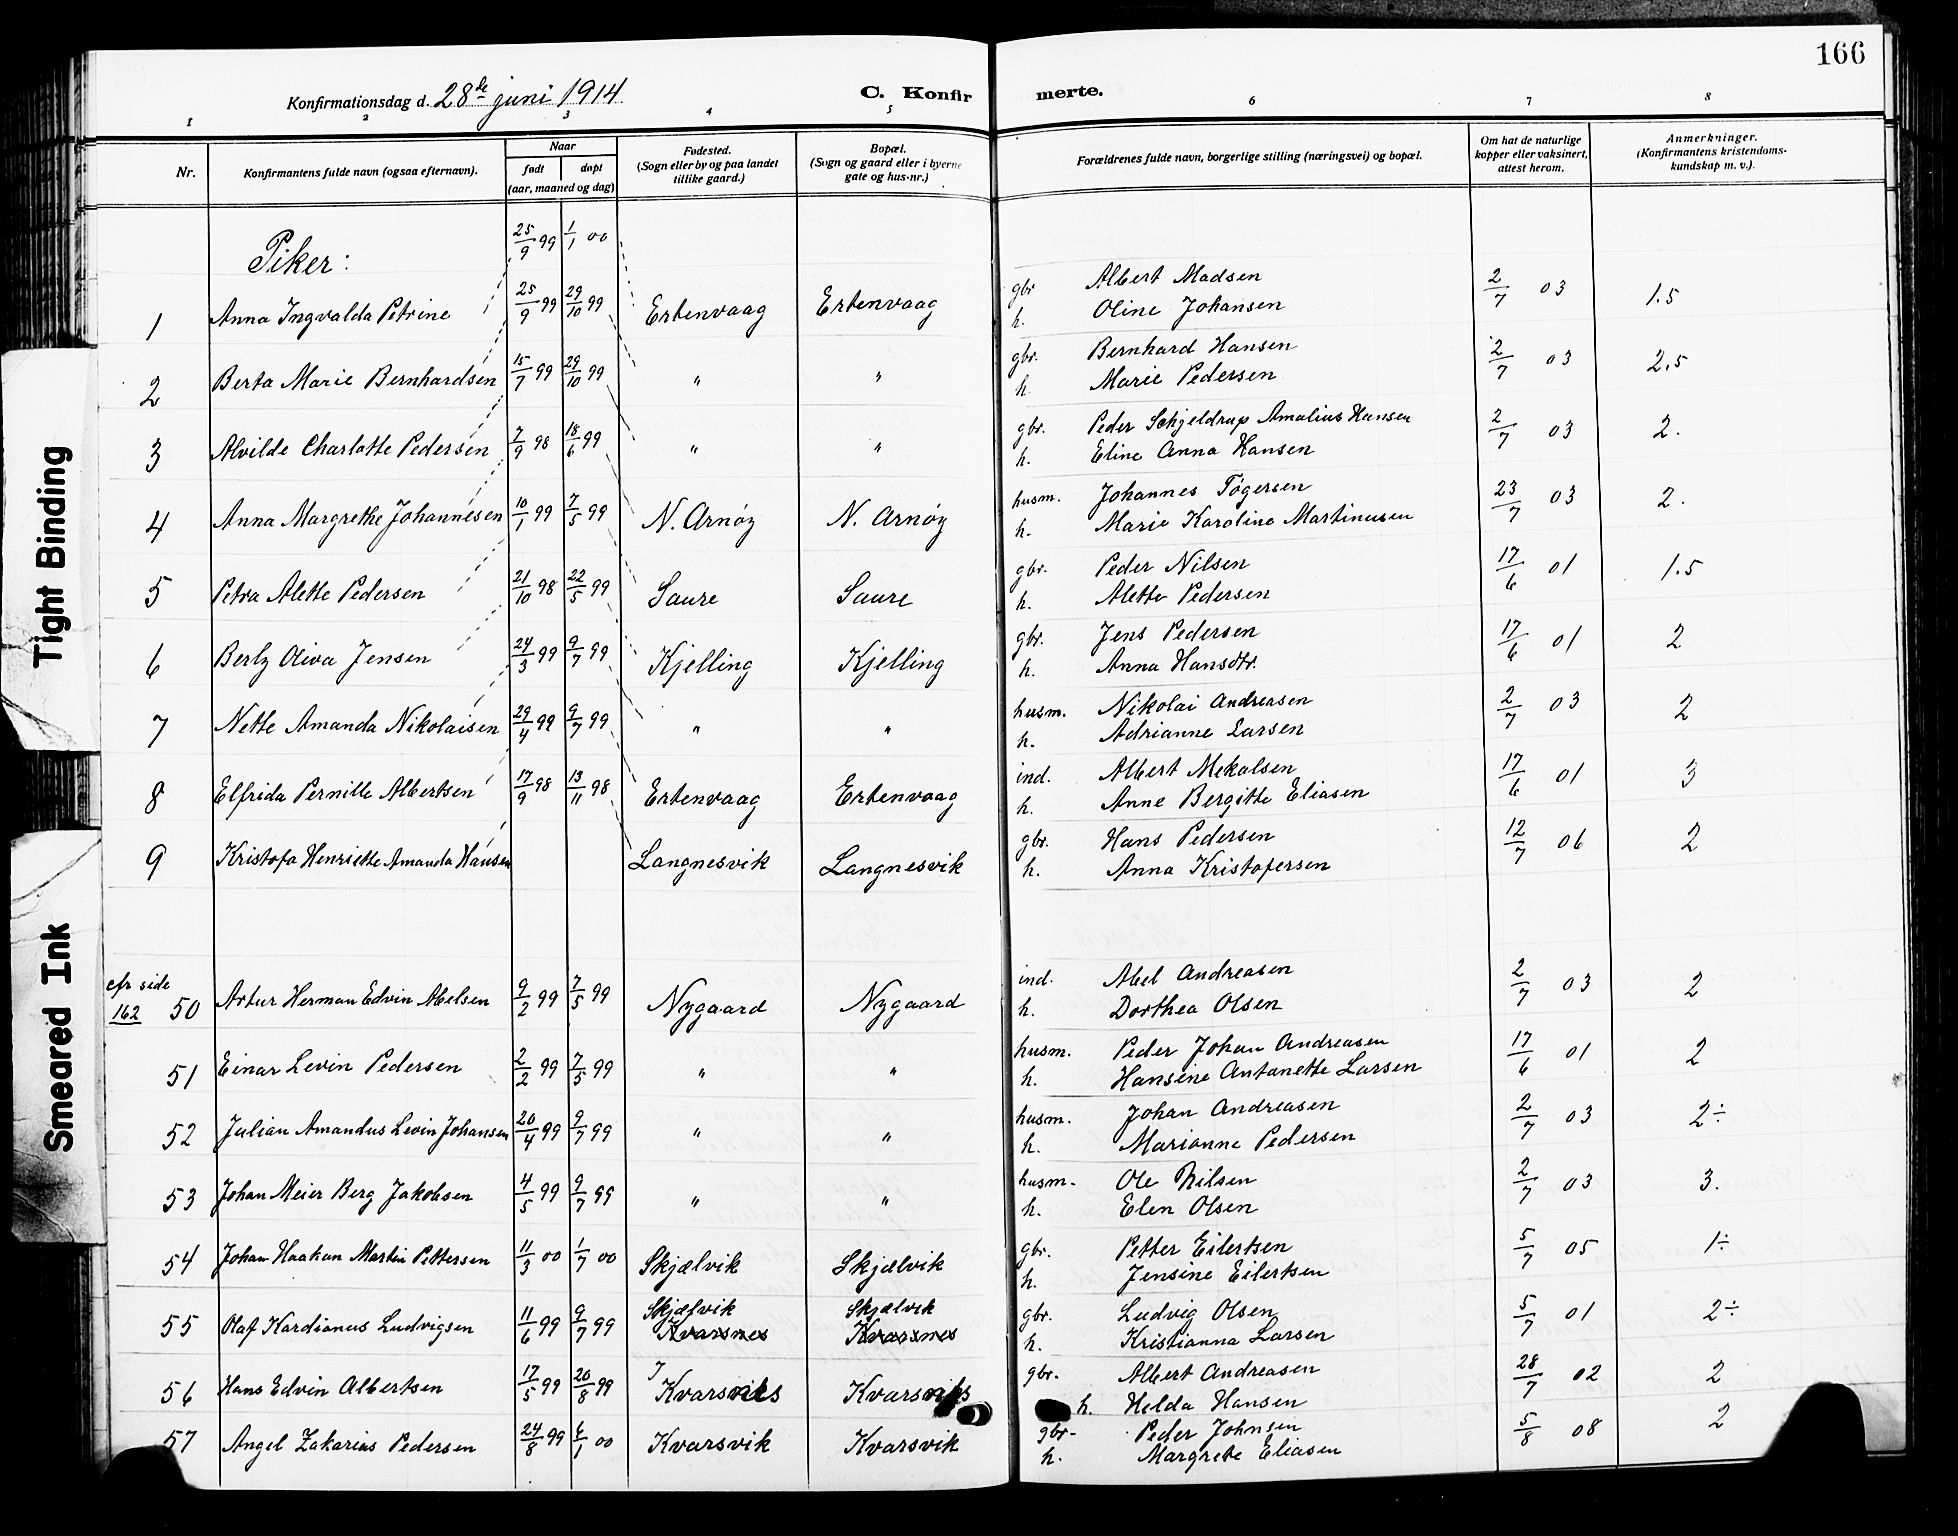 166
Konfirmationsdag d. 28de juni 1914
C. Konfir merte.
1 2 3 4 5 6 7 8
Nr.
Konfirmantens fulde navn (ogsaa efternavn).
Naar
født døpt
(aar, maaned og dag)
Fødested.
(Sogn eller by og paa landet
tillike gaard.)
Bopæl.
(Sogn og gaard eller i byerne
gate og hus-nr.)
Forældrenes fulde navn, borgerlige stilling (næringsvei) og bopæl.
Om hat de naturlige
kopper eller vaksinert,
attest herom.
Anmerkninger.
(Konfirmantens kristendoms-
kundskap m. v.).
Piker: 25/9 99 1/1 00
gbr Albert Madsen
1 Anna Ingvalda Petrine 25/9 99 29/10 99 Ertenvaag Ertenvaag 2/7 03 1.5
h. Oline Johansen
gbr. Bernhard Hansen
2 Berta Marie Bernhardsen 15/7 99 29/10 99 " " 2/7 03 2,5
h. Marie Pedersen
gbr. Peder Schjeldrup Amalius Hansen
3 Alvilde Charlotte Pedersen 7/9 98 18/6 99 " " 2/7 03 2.
h. Eline Anna Hansen
husm. Johannes Tøgersen
4 Anna Margrethe Johannesen 10/1 99 7/5 99 N. Arnøy N. Arnøy 23/7 03 2.
h. Marie Karoline Martinusen
gbr. Peder Nilsen
5 Petra Alette Pedersen 21/10 98 22/5 99 Saure Saure 17/6 01 1.5
h. Alette Pedersen
gbr. Jens Pedersen
6 Berly Oliva Jensen 24/3 99 9/7 99 Kjelling Kjelling 17/6 01 2
h. Anna Hansdtr.
husm. Nikolai Andreasen
7 Nette Amanda Nikolaisen 29/4 99 9/7 99 " " 2/7 03 2
h. Adrianne Larsen
ind. Albert Mekalsen
8 Elfrida Pernille Albertsen 17/9 98 13/11 98 Ertenvaag Ertenvaag 17/6 01 3
h. Anne Bergitte Eliasen
gbr. Hans Pedersen
9 Kristofa Henriette Amanda Hansen Langnesvik Langnesvik 12/7 06 2
h. Anna Kristofersen
cfr side
162
ind. Abel Andreasen
50 Artur Herman Edvin Abelsen 9/2 99 7/5 99 Nygaard Nygaard 2/7 03 2
h. Dorthea Olsen
husm. Peder Johan Andreasen
51 Einar Levin Pedersen 2/2 99 7/5 99 " " 17/6 01 2
h. Hansine Antonette Larsen
husm. Johan Andreasen
52 Julian Amandus Levin Johansen 20/4 99 9/7 99 " " 2/7 03 2÷
h. Marianne Pedersen
husm. Ole Nilsen
53 Johan Meier Berg Jakobsen 4/5 99 9/7 99 " " 2/7 03 3.
h. Elen Olsen
gbr. Petter Eilertsen
54 Johan Haakan Martin Pettersen 11/3 00 1/7 00 Skjælvik Skjælvik 5/7 05 1÷
h. Jensine Eilertsen
Skjælvik Skjælvik gbr. Ludvig Olsen
55 Olaf Kardianus Ludvigsen 11/6 99 9/7 99 Kvarsnes Kvarsnes 5/7 01 2÷
h. Kristianna Larsen
gbr. Albert Andreasen
56 Hans Edvin Albertsen 17/5 99 20/8 99 28/7 02 2
h. Helda Hansen
gbr. Peder Johnsen
57 Angel Zakarias Pedersen 24/8 99 00 Kvarsvik Kvarsvik 5/8 08 2
h. Margrete Eliasen
Tight Binding
Smeared Ink